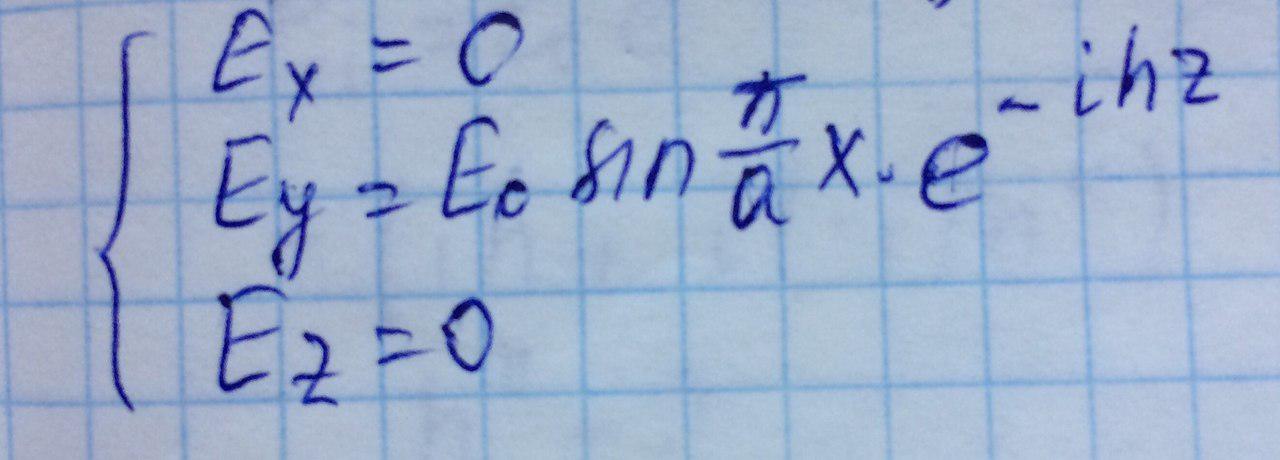 E_x = 0
E_y = E_0 sin π/a x · e^{-ihz}
E_z = 0